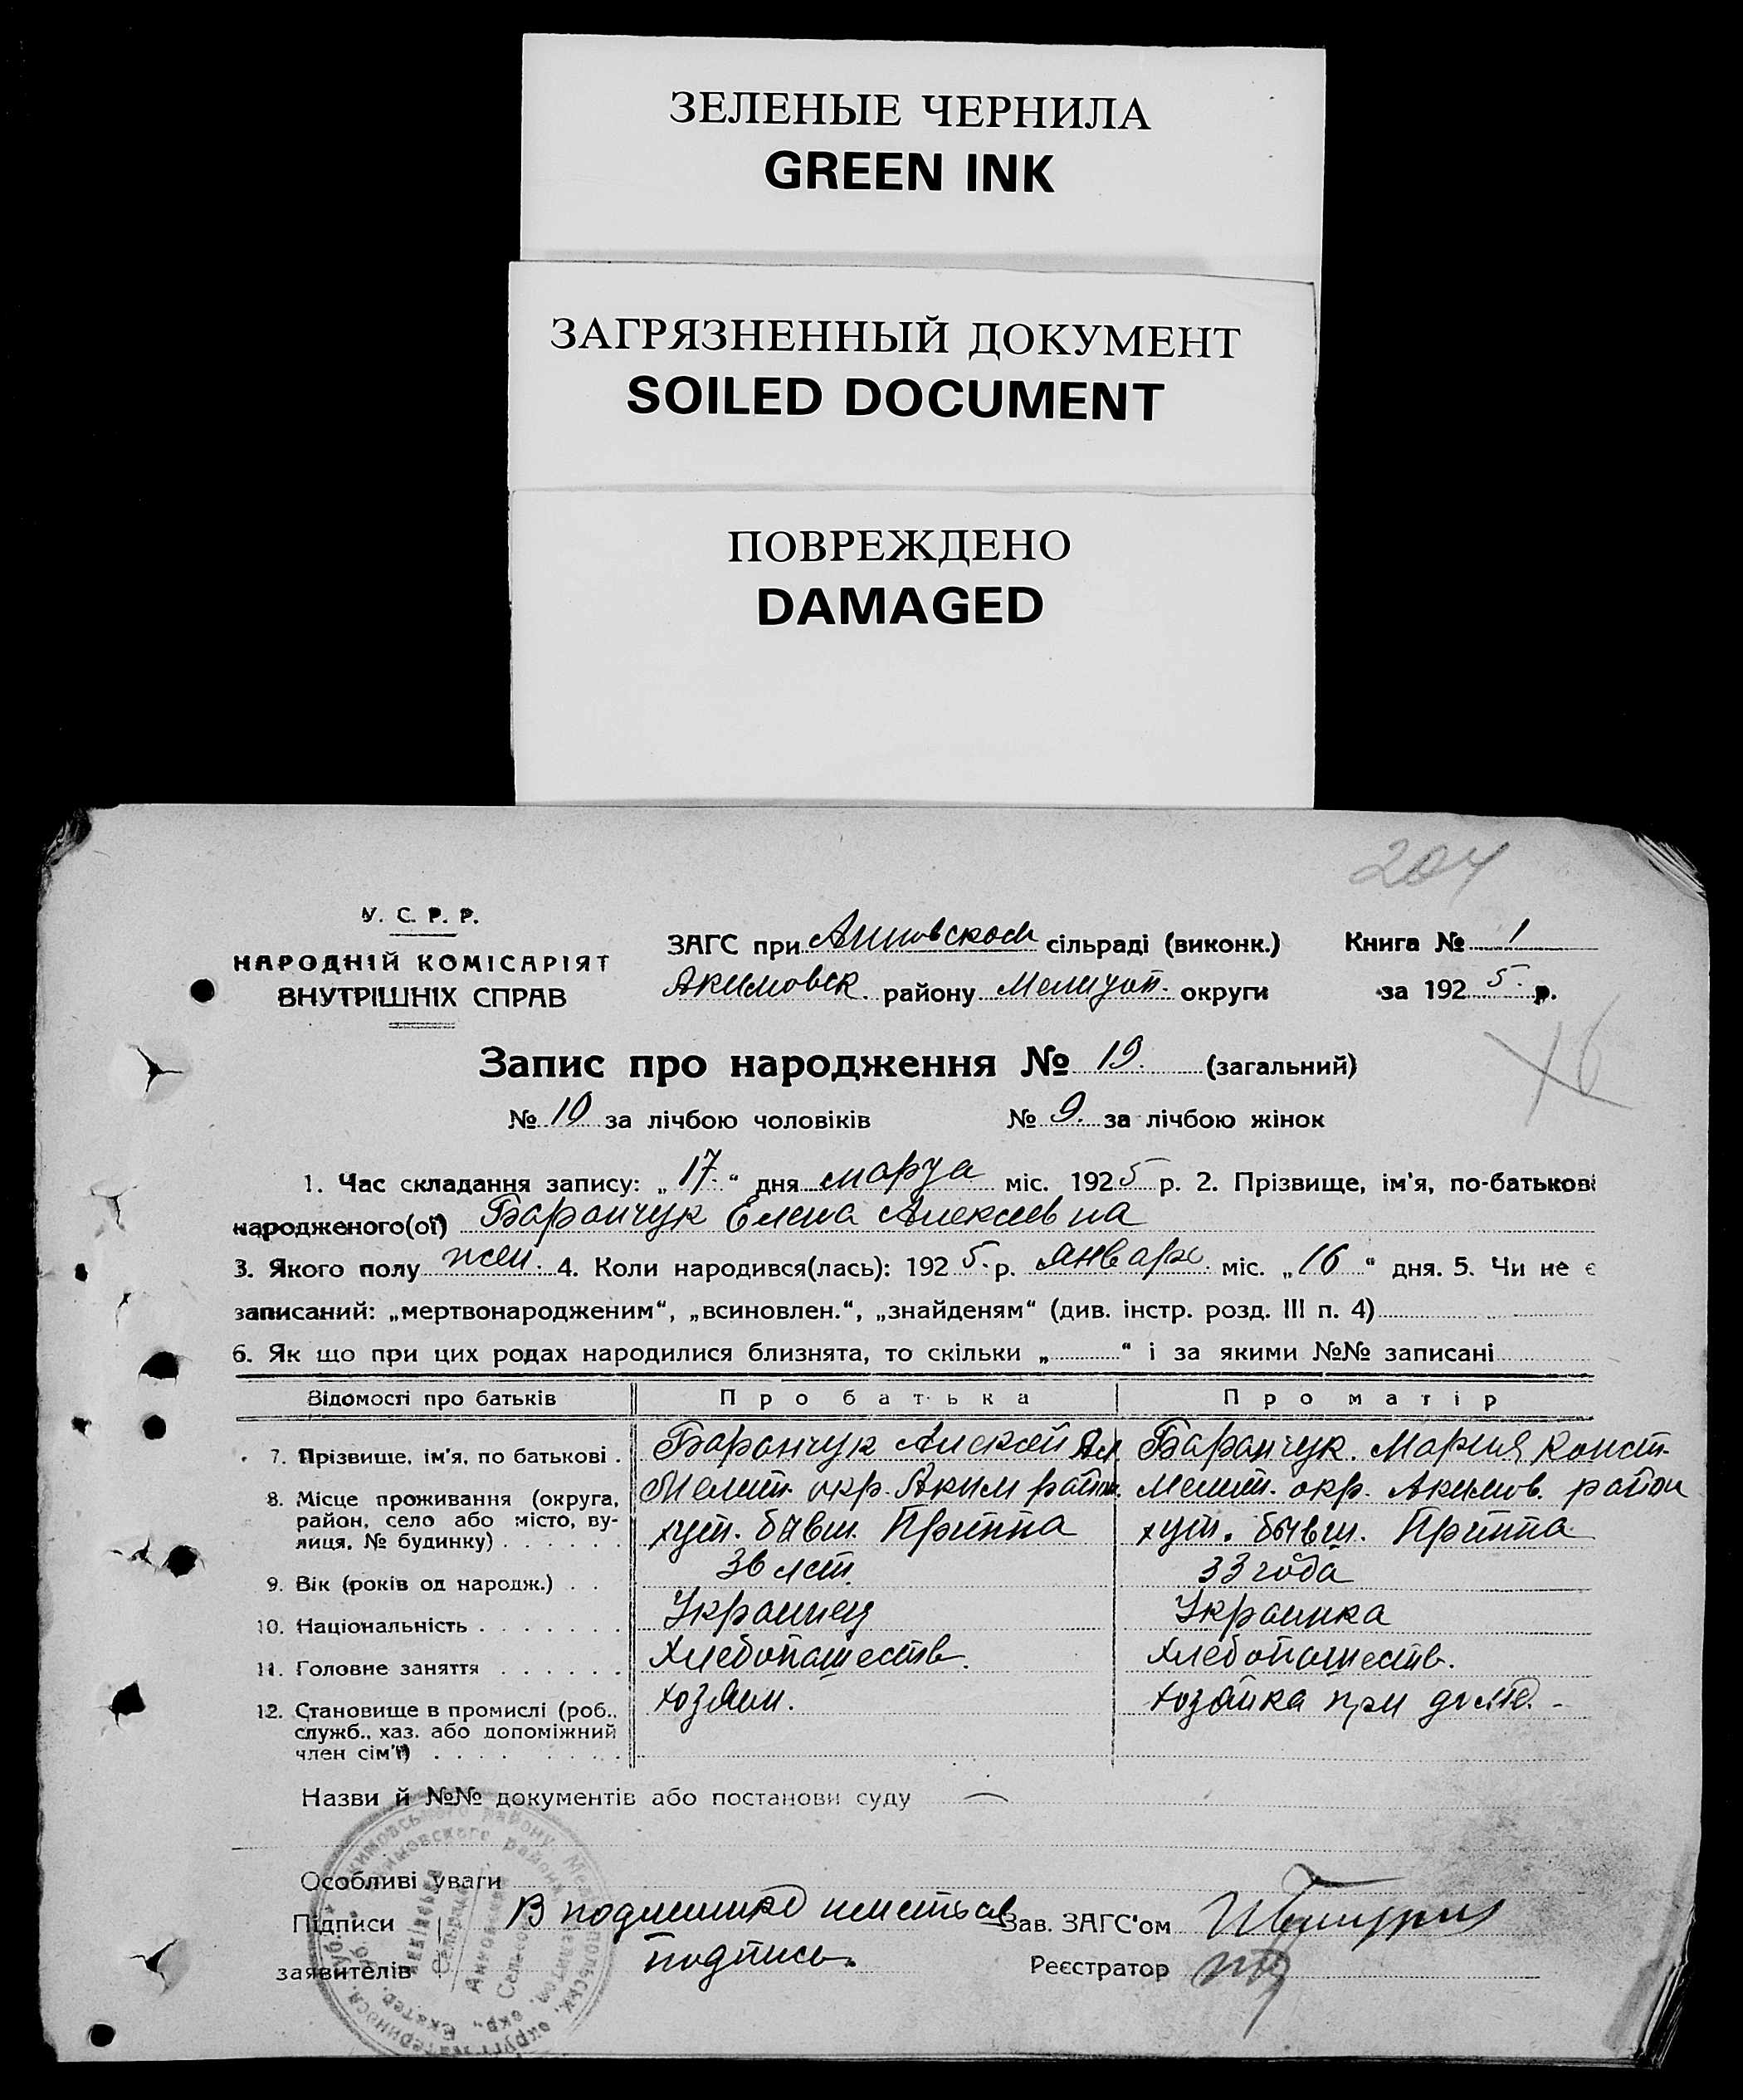 ЗЕЛЕНЫЕ ЧЕРНИЛА
GREEN INK
ЗАГРЯЗНЕННЫЙ ДОКУМЕНТ
SOILED DOCUMENT
ПОВРЕЖДЕНО
DAMAGED
204
У. С. Р. Р.
НАРОДНІЙ КОМІСАРІЯТ
ВНУТРІШНІХ СПРАВ
ЗАГС при Анновском сільраді (виконк.) Книга № 1
Акимовск. району Мелитоп. округи за 1925 р.
Запис про народження № 19. (загальний)
№ 10 за лічбою чоловіків № 9. за лічбою жінок
1. Час складання запису: „17.“ дня марта міс. 1925 р. 2. Прізвище, ім'я, по-батькові
народженого(ої) Баранчук Елена Алексеевна
3. Якого полу жен. 4. Коли народився(лась): 1925. р. Января міс. „16“ дня. 5. Чи не є
записаний: „мертвонародженим“, „всиновлен.“, „знайденям“ (див. інстр. розд. III п. 4)
6. Як що при цих родах народилися близнята, то скільки „ “ і за якими №№ записані
Відомості про батьків Про батька Про матір
7. Прізвище, ім'я, по батькові . Баранчук Алексей Ал. Баранчук. Мария Конст.
8. Місце проживання (округа, район, село або місто, вулиця, № будинку) Мелит. окр. Аким район. Мелит. окр. Акимов. район
хут. бывш. Приппа хут. бывш. Приппа
9. Вік (років од народж.) . . 36 лет. 33 года
10. Національність Украинец Украинка
11. Головне заняття Хлебопашеств. Хлебопашеств.
12. Становище в промислі (роб., служб., хаз. або допоміжний член сім'ї) хозяин. хозяйка при доме. -
Назви й №№ документів або постанови суду
Особливі уваги
Підписи В подлиннике имеется Зав. ЗАГС'ом
заявителів подпись. Реєстратор